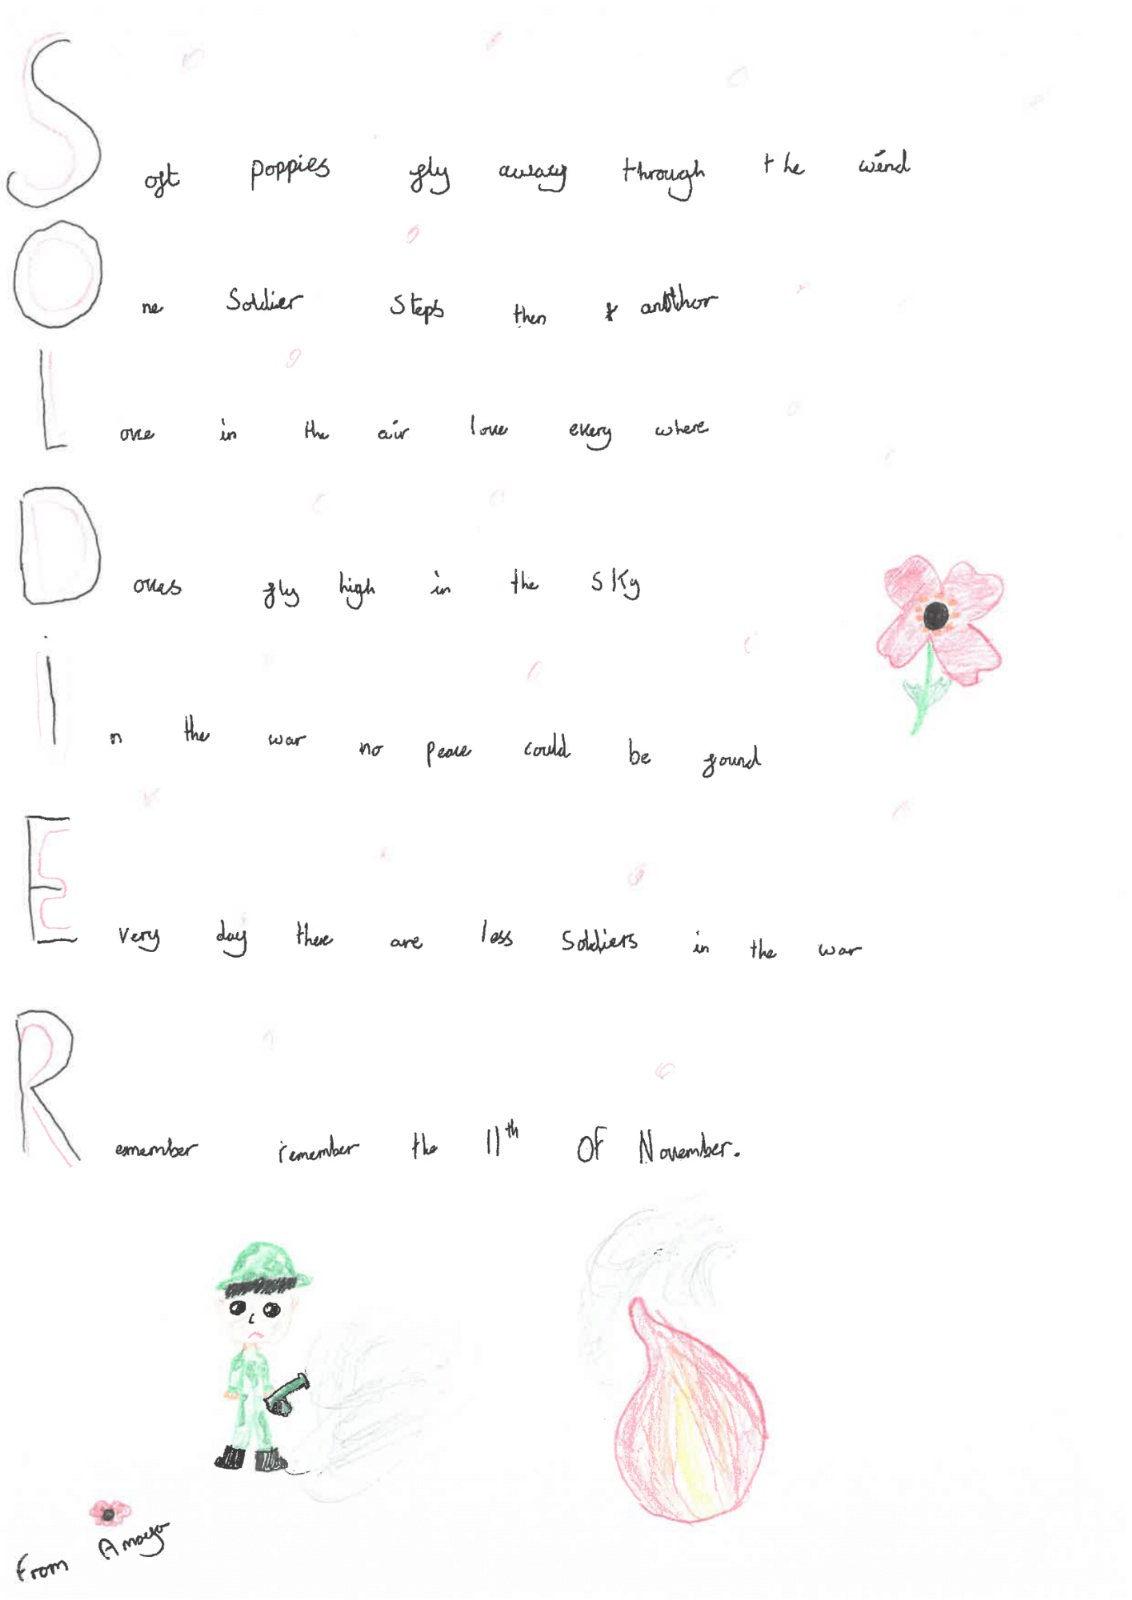 Soft poppies fly away through the wind
One Soldier Steps then anothor
Love in the air love every where
Doves fly high in the sky
in the war no peace could be found
Every day there are less Soldiers in the war
Remember remember the 11th Of November.
From Amaya